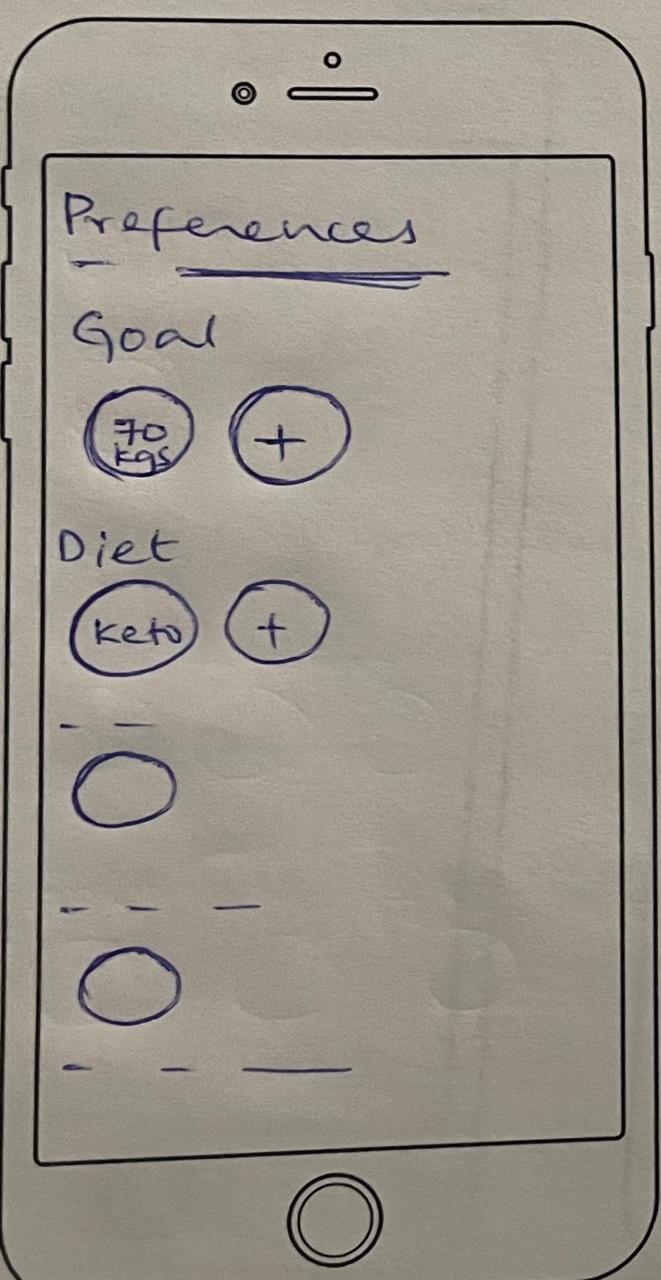 Preferences
Goal
70
kgs
+
Diet
Keto
+